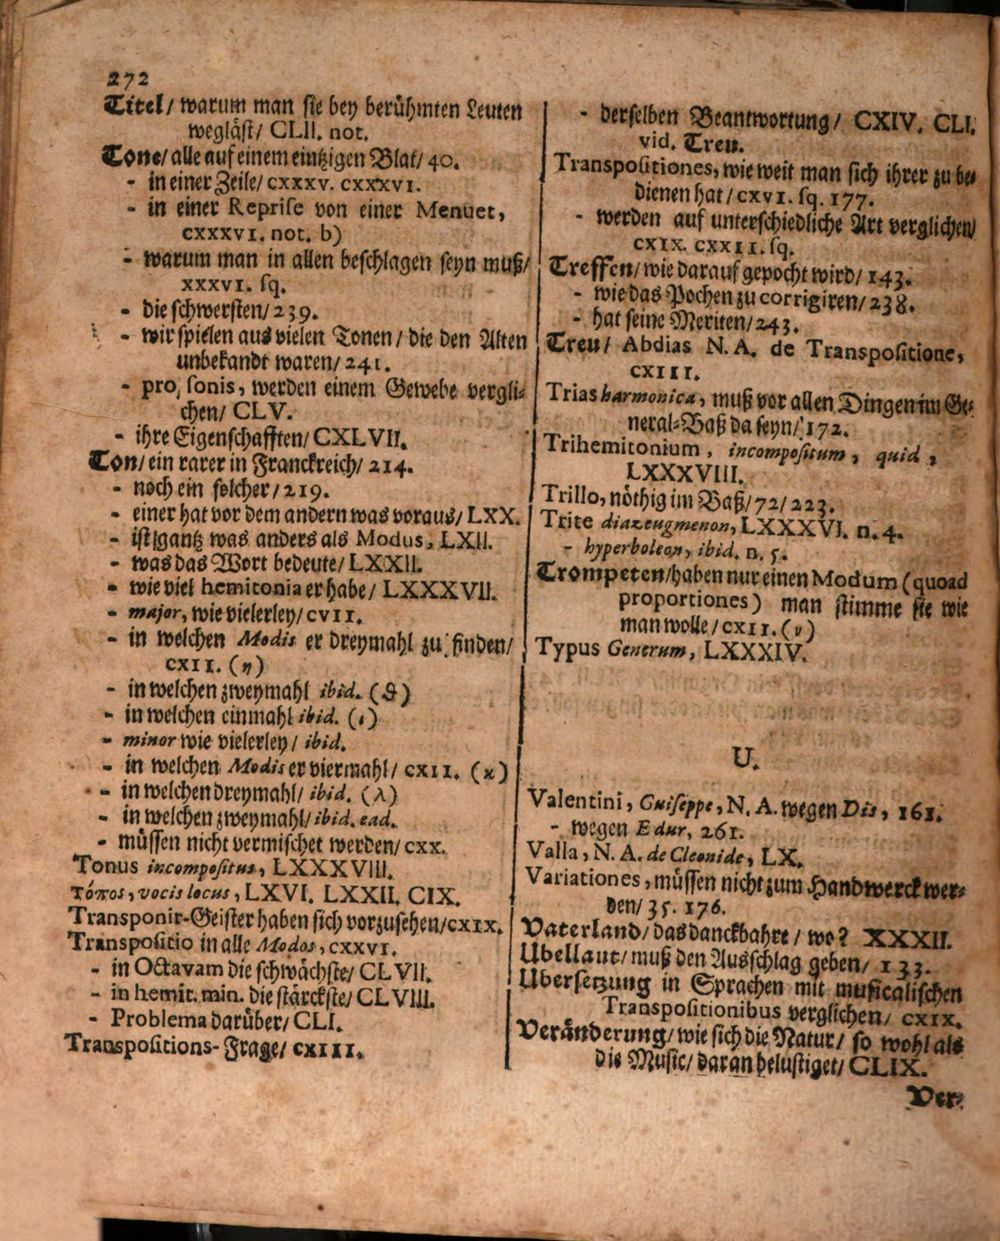 272
Titel/ warum man sie bey berühmten Leuten
wegläst/ CLII. not.
Tone/ alle auf einem eintzigen Blat/ 40.
- in einer Zeile/ cxxxv. cxxxvi.
- in einer Reprise von einer Menuet,
cxxxvi. not. b)
- warum man in allen beschlagen seyn muß/
xxxvi. sq.
- die schwersten/ 239.
- wir spielen aus vielen Tonen/ die den Alten
unbekandt waren/ 241.
- pro sonis, werden einem Gewebe vergli-
chen/ CLV.
- ihre Eigenschafften/ CXLVII.
Ton/ ein rarer in Franckreich/ 214.
- noch ein solcher/ 219.
- einer hat vor dem andern was voraus/ LXX.
- ist gantz was anders als Modus, LXII.
- was das Wort bedeute/ LXXII.
- wie viel hemitonia er habe/ LXXXVII.
- major, wie vielerley/ cvii.
- in welchen Modis er dreymahl zu finden/
cxii. (η)
- in welchen zweymahl ibid. (ϑ)
- in welchen einmahl ibid. (ι)
- minor wie vielerley/ ibid.
- in welchen Modis er viermahl/ cxii. (κ)
- in welchen dreymahl/ ibid. (λ)
- in welchen zweymahl/ ibid. ead.
- müssen nicht vermischet werden/ cxx.
Tonus incompositus, LXXXVIII.
τόπος, vocis locus, LXVI. LXXII. CIX.
Transponir-Geister haben sich vorzusehen/ cxix.
Transpositio in alle Modos, cxxvi.
- in Octavam die schwächste/ CLVII.
- in hemit. min. die stärckste/ CLVIII.
- Problema darüber/ CLI.
Transpositions-Frage/ cxiii.
- derselben Beantwortung/ CXIV. CLI.
vid. Treu.
Transpositiones, wie weit man sich ihrer zu be-
dienen hat/ cxvi. sq. 177.
- werden auf unterschiedliche Art verglichen/
cxix. cxxii. sq.
Treffen/ wie darauf gepocht wird/ 143.
- wie das Pochen zu corrigiren/ 238.
- hat seine Meriten/ 243.
Treu/ Abdias N. A. de Transpositione,
cxiii.
Trias harmonica, muß vor allen Dingen im Ge-
neral-Baß da seyn/ 172.
Trihemitonium, incompositum, quid,
LXXXVIII.
Trillo, nöthig im Baß/ 72/ 223.
Trite diazeugmenon, LXXXVI. n. 4.
- hyperboleon, ibid. n. 5.
Trompeten/ haben nur einen Modum (quoad
proportiones) man stimme sie wie
man wolle/ cxii. (ν)
Typus Generum, LXXXIV.
U.
Valentini, Guiseppe, N. A. wegen Dis, 161.
- wegen E dur, 261.
Valla, N. A. de Cleonide, LX.
Variationes, müssen nicht zum Handwerck wer-
den/ 35. 176.
Vaterland/ das danckbahre/ wo? XXXII.
Ubellaut/ muß den Ausschlag geben/ 133.
Ubersetzung in Sprachen mit musicalischen
Transpositionibus verglichen/ cxix.
Veränderung/ wie sich die Natur/ so wohl als
die Music/ daran belustiget/ CLIX.
Ver-